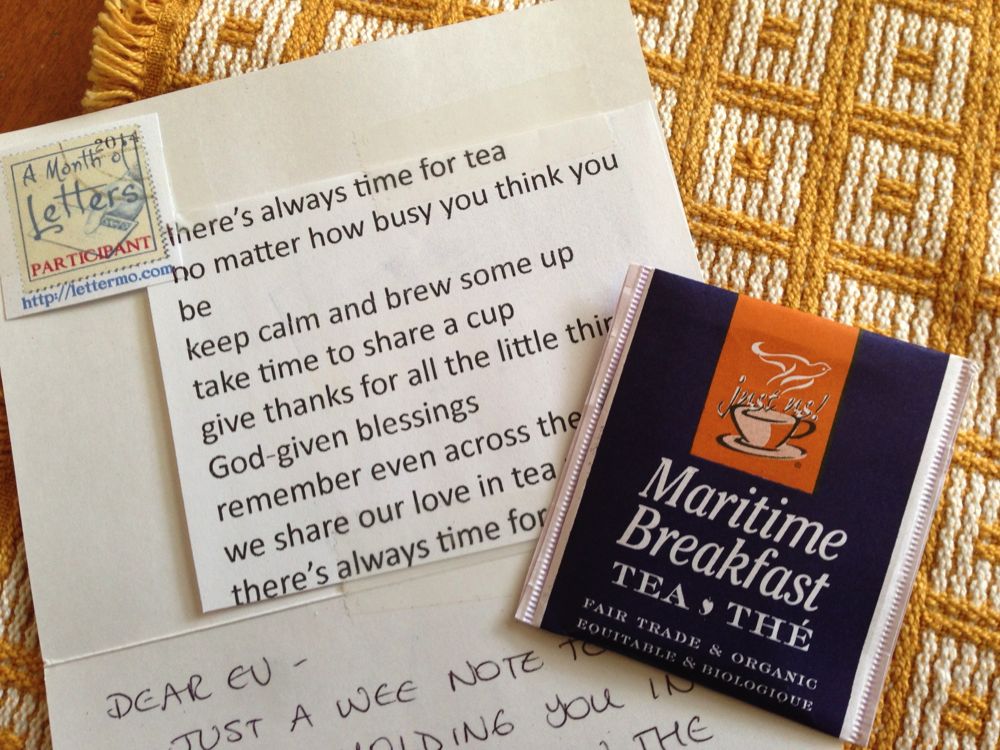 2014
A Month of
Letters
PARTICIPANT
http://lettermo.com
there's always time for tea
no matter how busy you think you
be
keep calm and brew some up
take time to share a cup
give thanks for all the little
God-given blessings
remember even across the
we share our love in tea
there's always time for
DEAR EV -
JUST A WEE NOTE TO
HOLDING YOU IN
THE
just us!
Maritime
Breakfast
TEA THÉ
FAIR TRADE & ORGANIC
EQUITABLE & BIOLOGIQUE